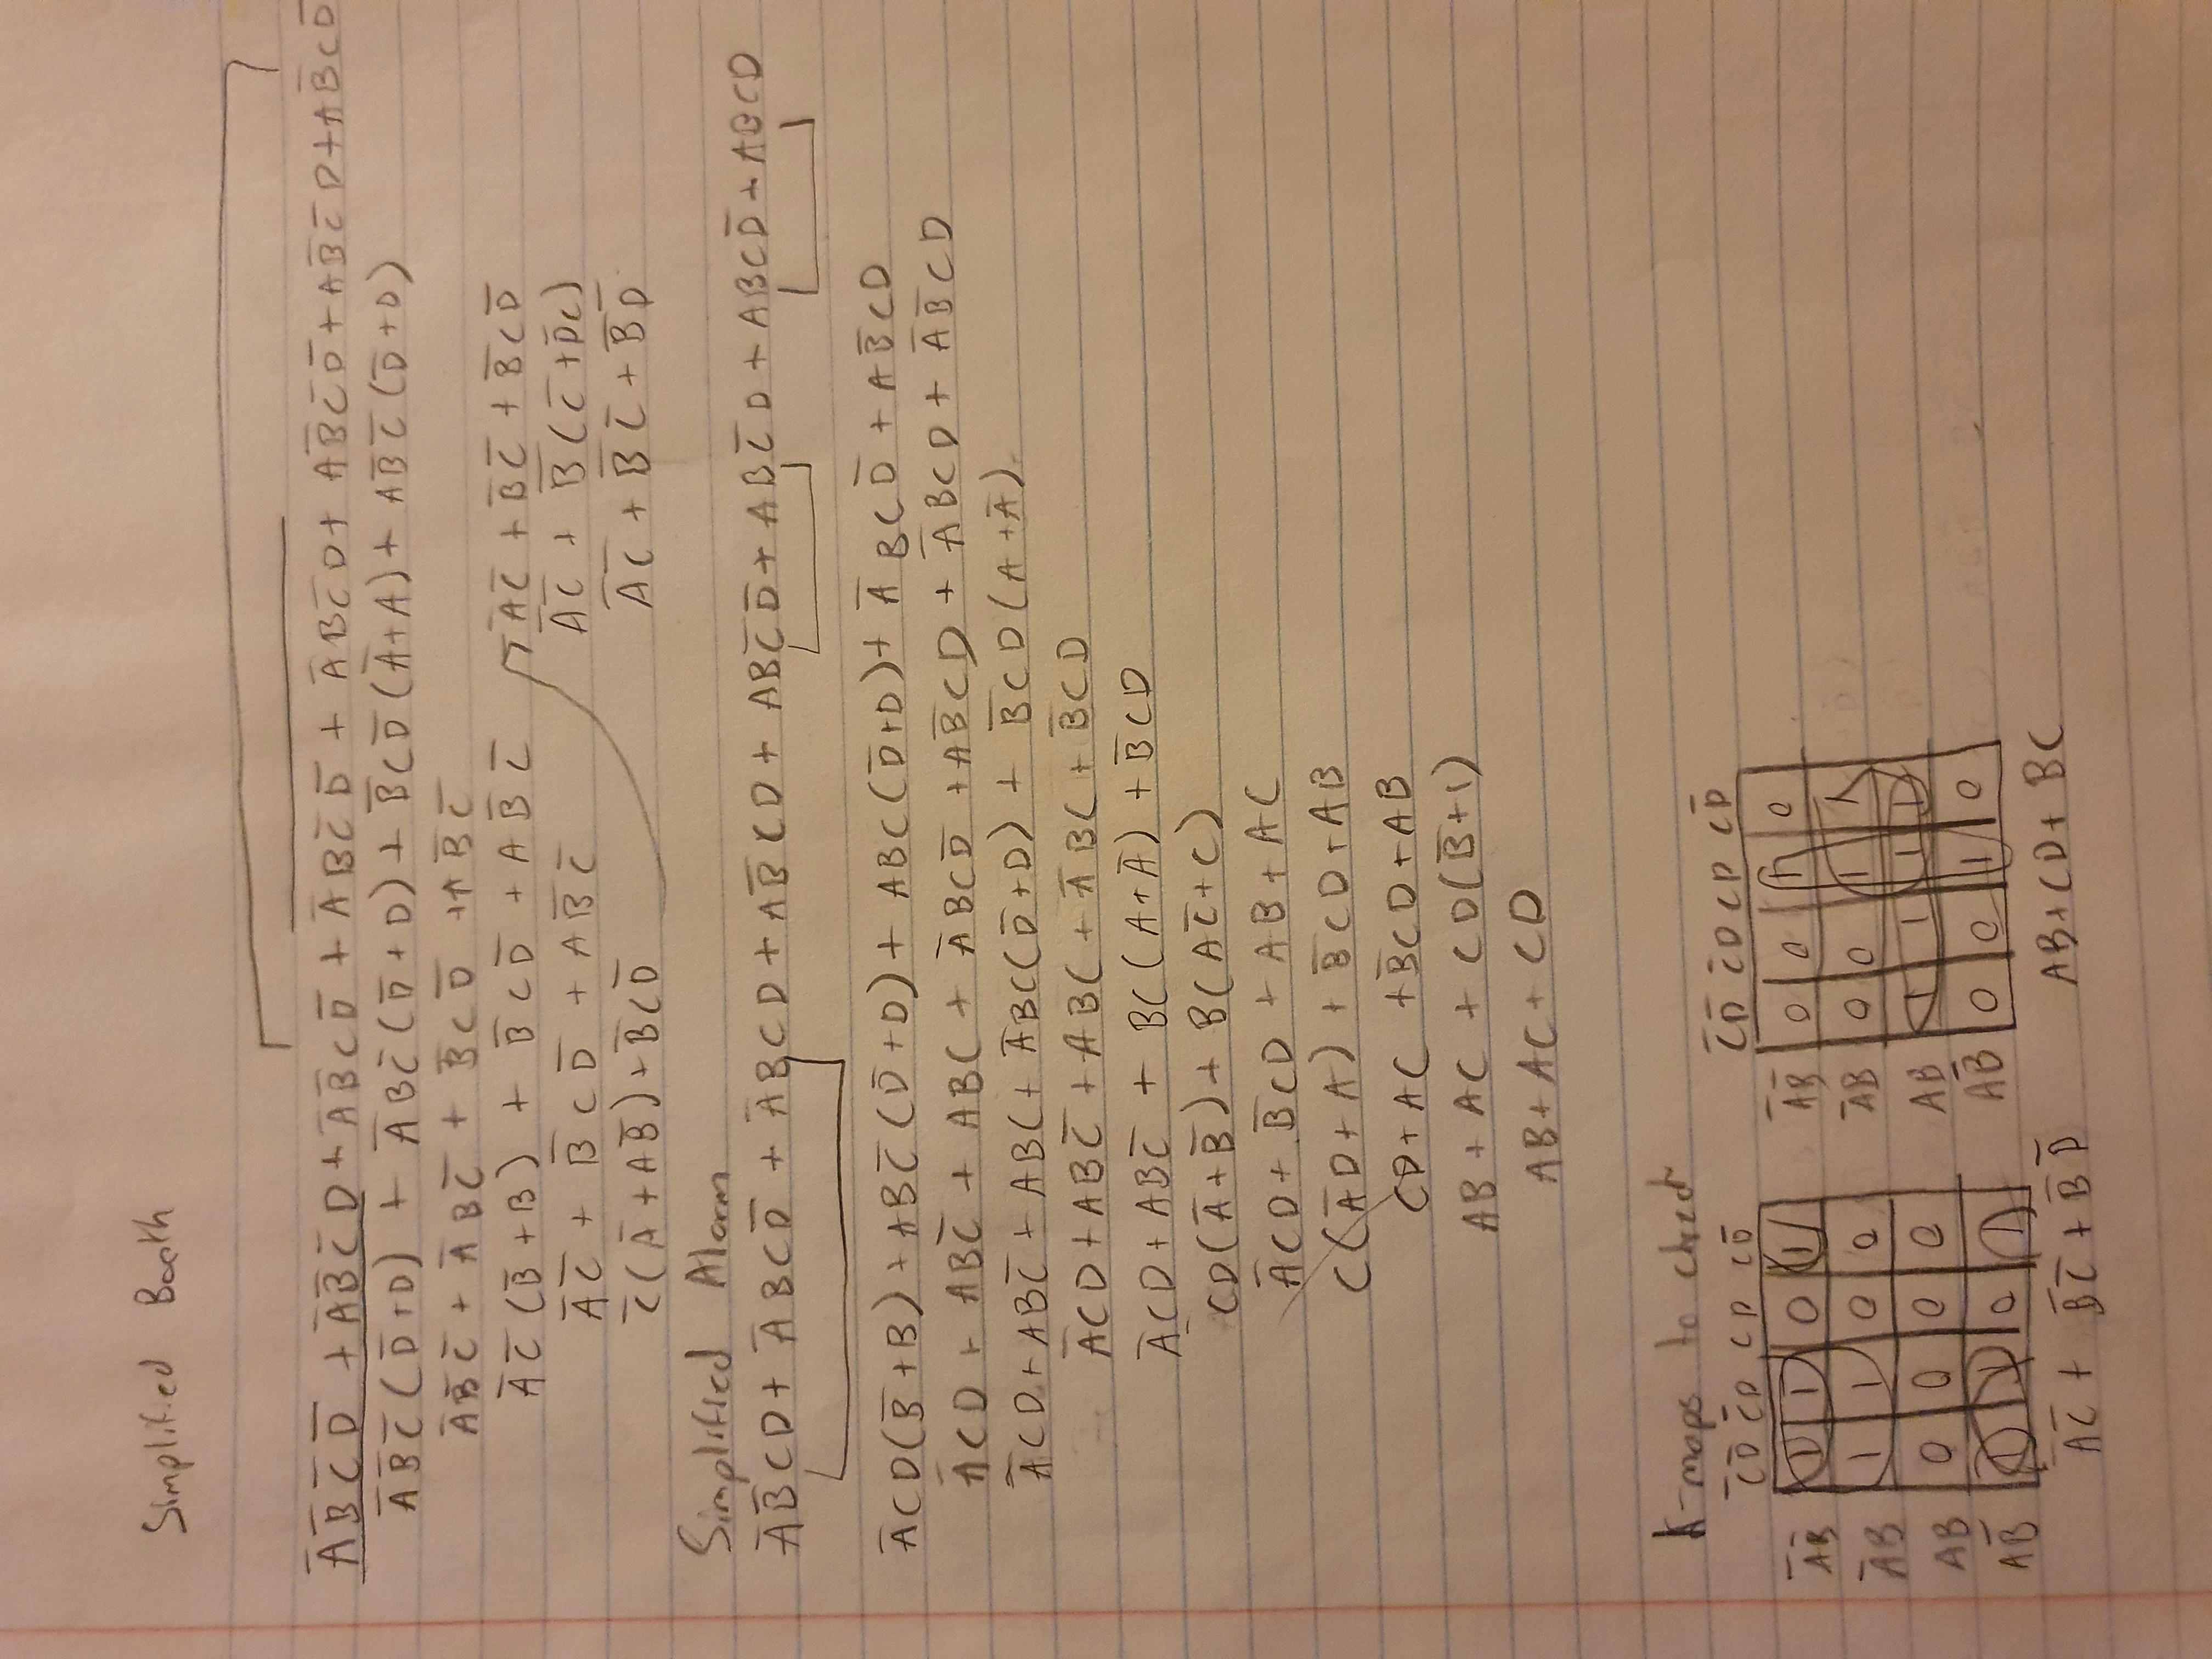 Simplified Booth
A̅B̅C̅D̅ + A̅B̅C̅D + A̅B̅CD̅ + A̅BC̅D̅ + A̅BC̅D + AB̅C̅D̅ + AB̅C̅D + AB̅CD̅
A̅B̅C̅(D̅+D) + A̅BC̅(D̅+D) + B̅CD̅(A̅+A) + AB̅C̅(D̅+D)
A̅B̅C̅ + A̅BC̅ + B̅CD̅ + AB̅C̅
A̅C̅(B̅+B) + B̅CD̅ + AB̅C̅
A̅C̅ + B̅CD̅ + AB̅C̅
C̅(A̅+AB̅)+B̅CD̅
A̅C̅ + B̅C̅ + B̅CD̅
A̅C̅ + B̅(C̅+D̅C)
A̅C̅ + B̅C̅ + B̅D̅
Simplified Alarm
A̅B̅CD + A̅BCD̅ + A̅BCD + AB̅CD + ABC̅D̅ + ABC̅D + ABCD̅ + ABCD
A̅CD(B̅+B) + ABC̅(D̅+D) + ABC(D̅+D) + A̅BCD̅ + AB̅CD
A̅CD + ABC̅ + ABC + A̅BCD̅ + AB̅CD + A̅BCD + A̅B̅CD
A̅CD + ABC̅ + ABC + A̅BC(D̅+D) + B̅CD(A+A̅)
A̅CD + ABC̅ + ABC + A̅BC + B̅CD
A̅CD + ABC̅ + BC(A+A̅) + B̅CD
CD(A̅+B̅) + B(AC̅+C)
A̅CD + B̅CD + AB + AC
C(A̅D+A) + B̅CD + AB
CD + AC + B̅CD + AB
AB + AC + CD(B̅+1)
AB + AC + CD
K-maps to check
C̅D̅ C̅D CD CD̅
A̅B̅ 1 1 0 1
A̅B 1 1 0 0
AB 0 0 0 0
AB̅ 1 1 0 1
A̅C̅ + B̅C̅ + B̅D̅
C̅D̅ C̅D CD CD̅
A̅B̅ 0 0 1 0
A̅B 0 0 1 1
AB 1 1 1 1
AB̅ 0 0 1 0
AB + CD + BC